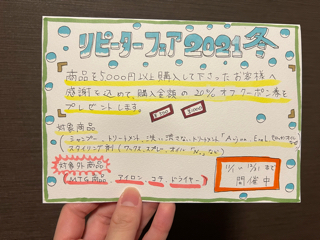 リピーターフェア2021冬
商品を5000円以上購入して下さったお客様へ
感謝を込めて、購入金額の20%オフクーポン券を
プレゼントします。
対象商品
(シャンプー、トリートメント、洗い流さないトリートメント
スタイリング剤(ワックス、スプレー、オイルなど)
対象外商品
MTG商品 アイロン コテ ドライヤー
11/1〜12/31まで
開催中